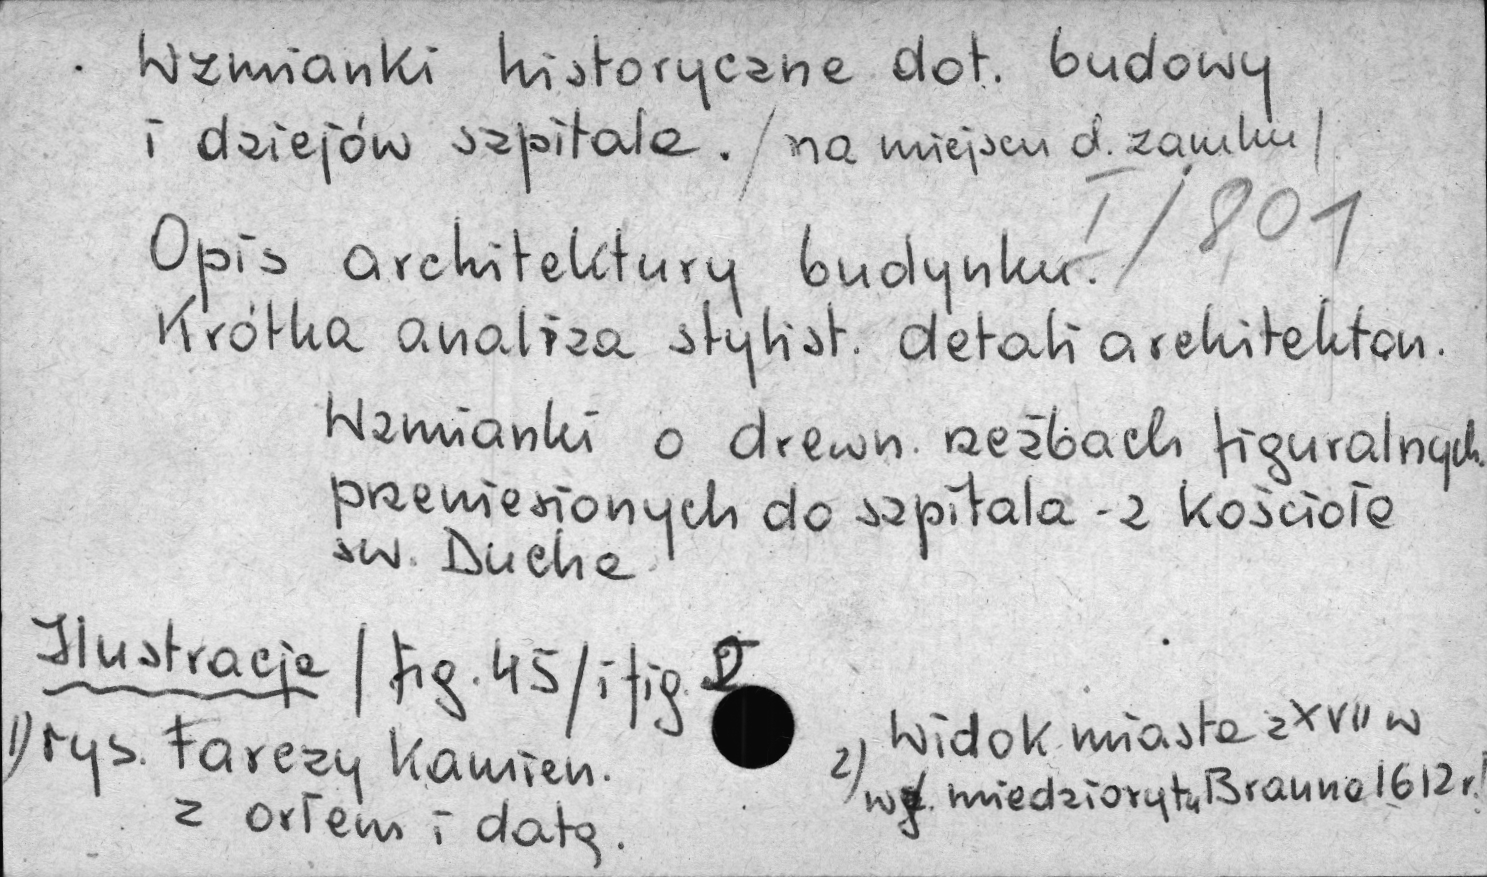 Wzmianki historyczne dot. budowy
i dziejów szpitala. /na miejscu d. zamku/
I/801
Opis architektury budynku.
Krótka analiza stylist. detali architekton.
Wzmianki o drewn. rzeźbach figuralnych
przeniesionych do szpitala - z kościoła
św. Ducha
Ilustracje /fig. 45/ i fig.
1) rys. Tarczy Kamien.
z orłem i datą.
2) Widok miasta z XVII w
wg. miedziorytu Brauna 1612 r.